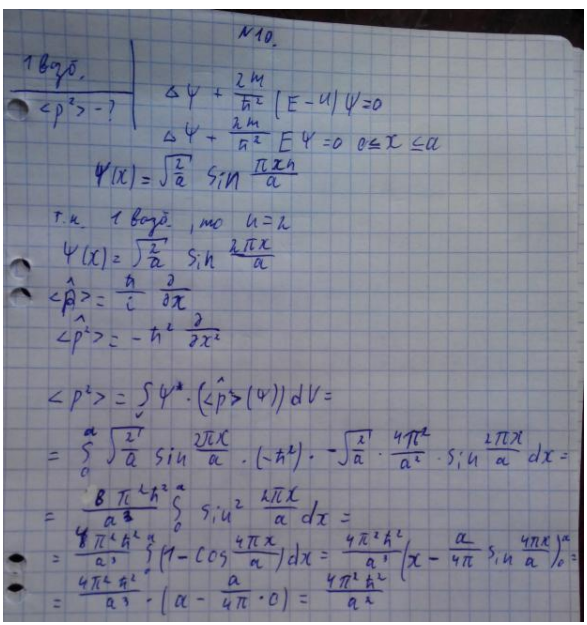 N10.
1 возб.
<p²> - ?
Δψ + 2m/ħ² (E-U)ψ=0
Δψ + 2m/ħ² Eψ=0 0≤x≤a
ψ(x) = √(2/a) sin πxn/a
т.к. 1 возб., то n=2
ψ(x) = √(2/a) sin 2πx/a
<p̂> = ħ/i ∂/∂x
<p̂²> = -ħ² ∂/∂x²
<p²> = ∫ᵥ ψ* · (<p̂²>(ψ)) dV =
= ∫₀ᵃ √(2/a) sin 2πx/a · (-ħ²) · -√(2/a) · 4π²/a² · sin 2πx/a dx =
= 8π²ħ²/a³ ∫₀ᵃ sin² 2πx/a dx =
= 4π²ħ²/a³ ∫₀ᵃ (1 - cos 4πx/a) dx = 4π²ħ²/a³ (x - a/4π sin 4πx/a)₀ᵃ =
= 4π²ħ²/a³ · (a - a/4π · 0) = 4π²ħ²/a²